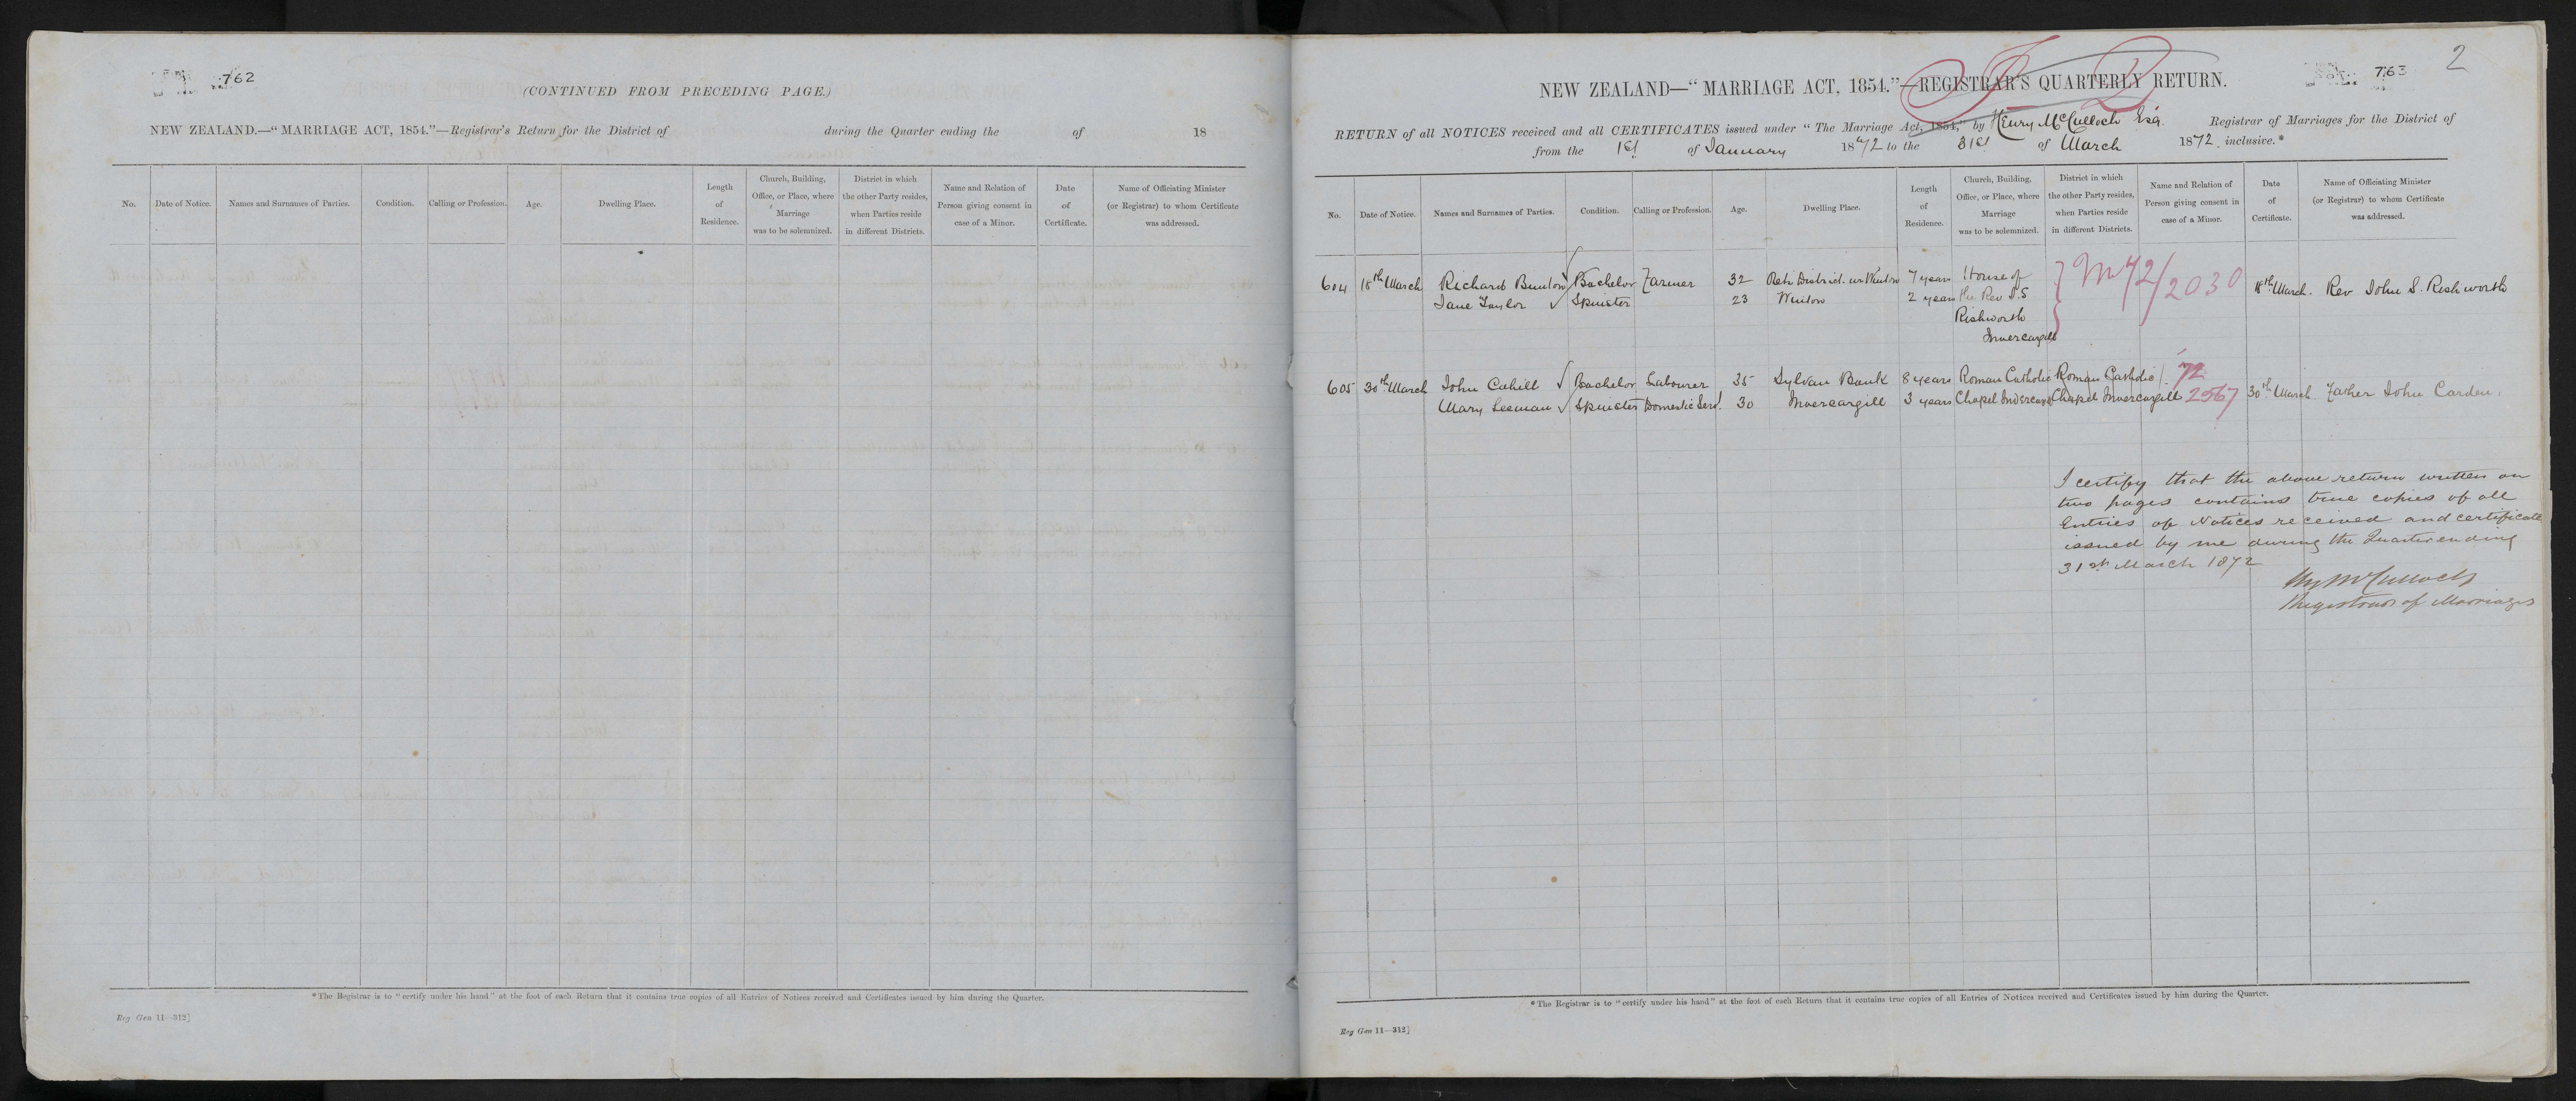 762
(CONTINUED FROM PRECEDING PAGE.)
NEW ZEALAND.—"MARRIAGE ACT, 1854."—Registrar's Return for the District of during the Quarter ending the of 18
No. Date of Notice. Names and Surnames of Parties. Condition. Calling or Profession. Age. Dwelling Place. Length of Residence. Church, Building, Office, or Place, where Marriage was to be solemnized. District in which the other Party resides, when Parties reside in different Districts. Name and Relation of Person giving consent in case of a Minor. Date of Certificate. Name of Officiating Minister (or Registrar) to whom Certificate was addressed.
*The Registrar is to "certify under his hand" at the foot of each Return that it contains true copies of all Entries of Notices received and Certificates issued by him during the Quarter.
Reg Gen 11—312]
763
2
NEW ZEALAND—"MARRIAGE ACT, 1854."—REGISTRAR'S QUARTERLY RETURN.
RETURN of all NOTICES received and all CERTIFICATES issued under "The Marriage Act, 1854," by Henry McCulloch Esq. Registrar of Marriages for the District of
from the 1st of January 1872 to the 31st of March 1872. inclusive.*
No. Date of Notice. Names and Surnames of Parties. Condition. Calling or Profession. Age. Dwelling Place. Length of Residence. Church, Building, Office, or Place, where Marriage was to be solemnized. District in which the other Party resides, when Parties reside in different Districts. Name and Relation of Person giving consent in case of a Minor. Date of Certificate. Name of Officiating Minister (or Registrar) to whom Certificate was addressed.
604 18th March Richard Bunton Bachelor Farmer 32 District nr Winton 7 years House of M 72/2030 18th March. Rev John S. Rishworth
Jane Taylor Spinster 23 Winton 2 years the Rev J.S
Rishworth
Invercargill
605 30th March John Cahill Bachelor Labourer 35 Sylvan Bank 8 years Roman Catholic Roman Catholic 72 30th March Father John Carden.
Mary Leeman Spinster Domestic Serv. 30 Invercargill 3 years Chapel Invercargill Chapel Invercargill 2567
I certify that the above return written on
two pages contains true copies of all
Entries of Notices received and certificate
issued by me during the Quarter ending
31st March 1872
Hy McCulloch
Registrar of Marriages
*The Registrar is to "certify under his hand" at the foot of each Return that it contains true copies of all Entries of Notices received and Certificates issued by him during the Quarter.
Reg Gen 11—312]